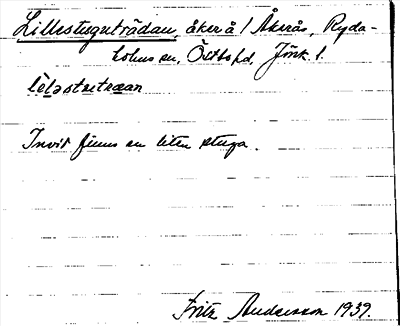 Lillestuguträdan, åker å 1 Åkerås, Ryda-
holms sn, Östbo hd, Jönk. l.
lèləstuetræan
Invid finns en liten stuga.
Fritz Andersson 1939.